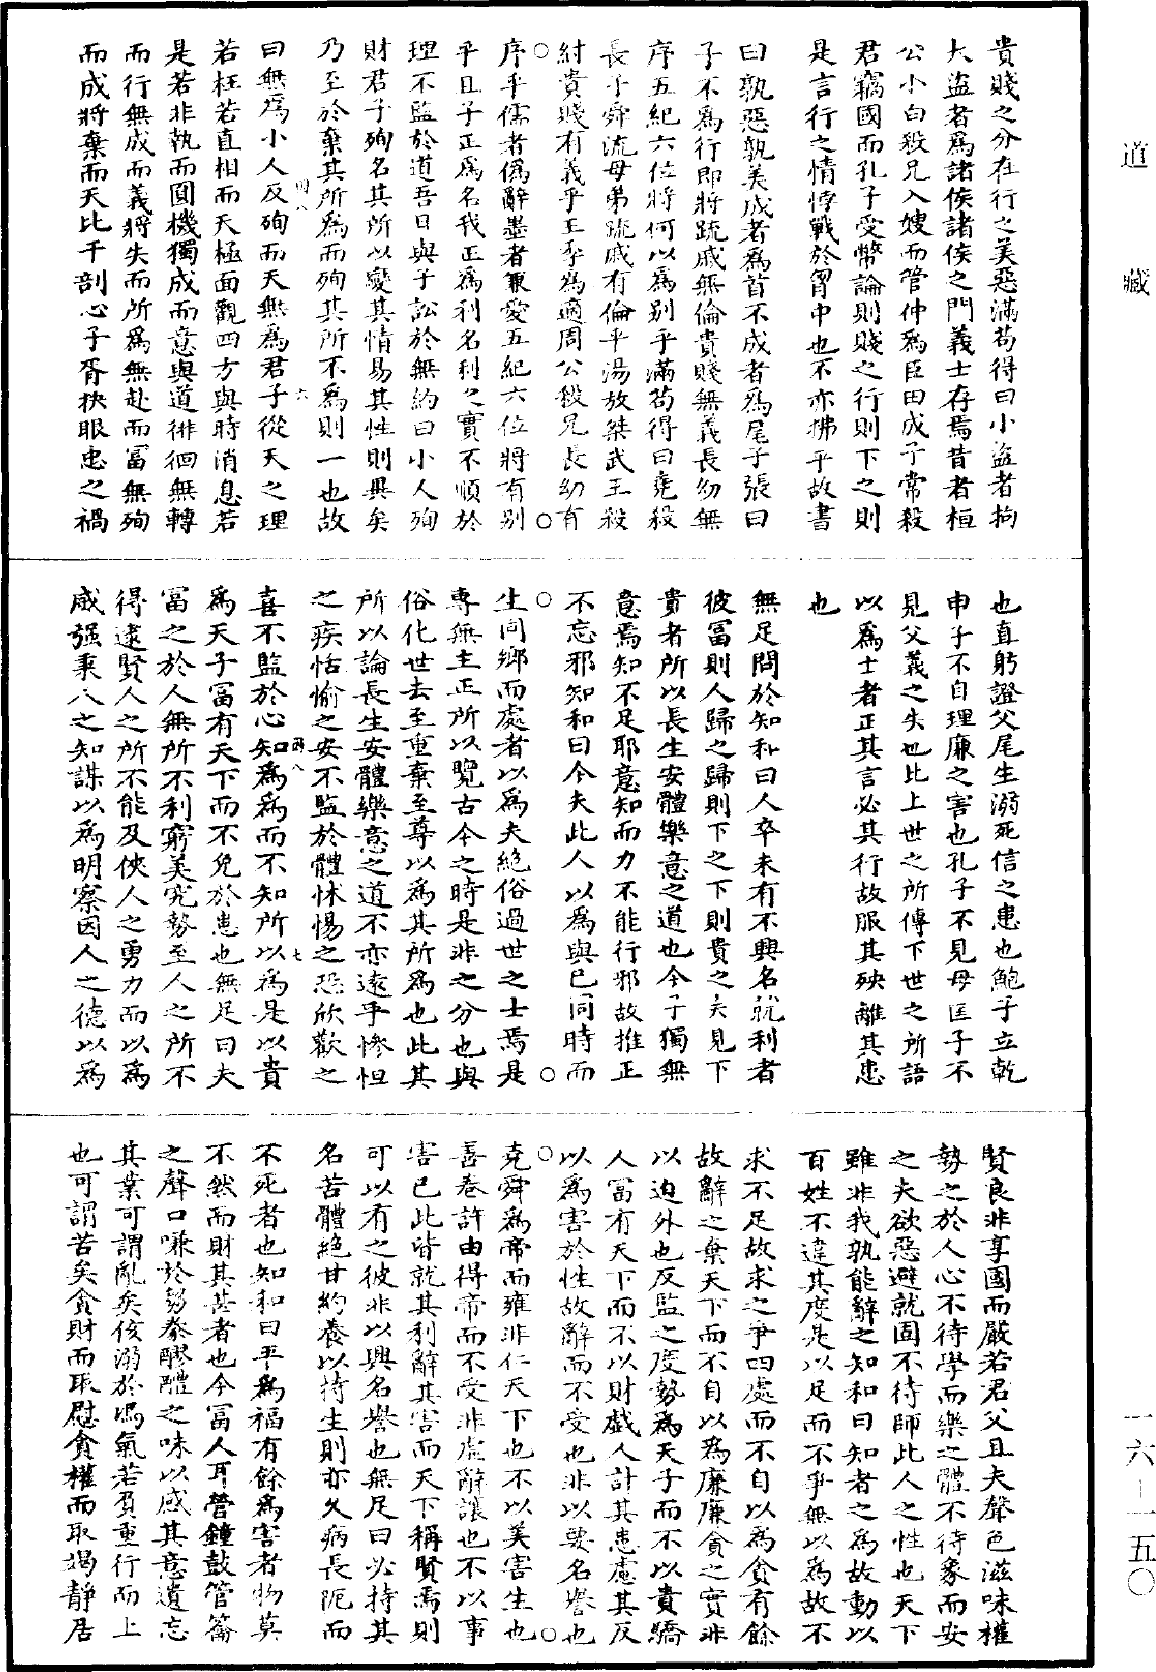 道藏
貴賤之分在行之美惡滿苟得曰小盜者拘
大盜者爲諸侯諸侯之門義士存焉昔者桓
公小白殺兄入嫂而管仲爲臣田成子常殺
君竊國而孔子受幣論則賤之行則下之則
是言行之情悖戰於胷中也不亦拂乎故書
曰孰惡孰美成者爲首不成者爲尾子張曰
子不爲行即將疏戚無倫貴賤無義長幼無
序五紀六位將何以爲别乎滿苟得曰堯殺
長子舜流母弟疏戚有倫乎湯放桀武王殺
紂貴賤有義乎王季爲適周公殺兄長幼有
序乎儒者偽辭墨者兼愛五紀六位將有别
乎且子正爲名我正爲利名利之實不順於
理不監於道吾日與子訟於無約曰小人殉
財君子殉名其所以變其情易其性則異矣
乃至於棄其所爲而殉其所不爲則一也故
四八 六
曰無爲小人反殉而天無爲君子從天之理
若枉若直相而天極面觀四方與時消息若
是若非執而圓機獨成而意與道徘徊無轉
而行無成而義將失而所爲無赴而富無殉
而成將棄而天比干剖心子胥抉眼忠之禍
也直躬證父尾生溺死信之患也鮑子立乾
申子不自理廉之害也孔子不見母匡子不
見父義之失也比上世之所傳下世之所語
以爲士者正其言必其行故服其殃離其患
也
無足問於知和曰人卒未有不興名就利者
彼富則人歸之歸則下之下則貴之夫見下
貴者所以長生安體樂意之道也今子獨無
意焉知不足耶意知而力不能行邪故推正
不忘邪知和曰今夫此人以爲與己同時而
生同鄉而處者以爲夫絶俗過世之士焉是
專無主正所以覽古今之時是非之分也與
俗化世去至重棄至尊以爲其所爲也此其
所以論長生安體樂意之道不亦遠乎慘怛
之疾恬愉之安不監於體怵惕之恐欣歡之
四八 七
喜不監於心知爲爲而不知所以爲是以貴
爲天子富有天下而不免於患也無足曰夫
富之於人無所不利窮美究勢至人之所不
得逮賢人之所不能及俠人之勇力而以爲
威强秉人之知謀以爲明察因人之德以爲
賢良非享國而嚴若君父且夫聲色滋味權
勢之於人心不待學而樂之體不待象而安
之夫欲惡避就固不待師此人之性也天下
雖非我孰能辭之知和曰知者之爲故動以
百姓不違其度是以足而不爭無以爲故不
求不足故求之爭四處而不自以爲貪有餘
故辭之棄天下而不自以爲廉廉貪之實非
以迫外也反監之度勢爲天子而不以貴驕
人富有天下而不以財戲人計其患慮其反
以爲害於性故辭而不受也非以要名譽也
堯舜爲帝而雍非仁天下也不以美害生也
善卷許由得帝而不受非虚辭讓也不以事
害已此皆就其利辭其害而天下稱賢焉則
可以有之彼非以興名譽也無足曰必持其
名苦體絶甘約養以持生則亦久病長阨而
不死者也知和曰平爲福有餘爲害者物莫
不然而財其甚者也今富人耳營鐘鼓管籥
之聲口嗛於芻豢醪醴之味以感其意遺忘
其業可謂亂矣侅溺於馮氣若負重行而上
也可謂苦矣貪財而取慰貪權而取竭靜居
一六—一五〇